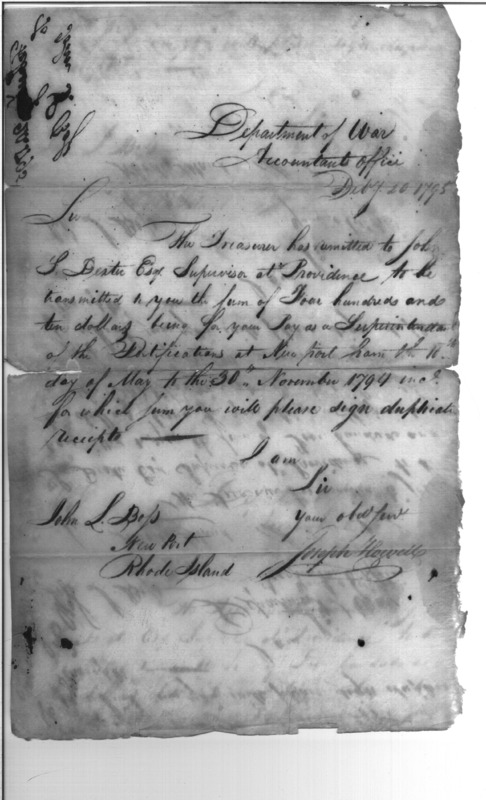 Department of War
Accountants office
Feby 10 1795
Sir
The Treasurer has remitted to John
S. Dexter Esqr Supervisor at Providence to be
transmitted to you the sum of Four hundreds and
ten dollars being for your Pay as a Superintendant
of the Fortifications at New port from the 10th
day of May to the 30th November 1794 incl.
for which sum you will please sign duplicate
receipts
I am
Sir
John L. Boss
your obed ser
New Port
Joseph Howell
Rhode Island